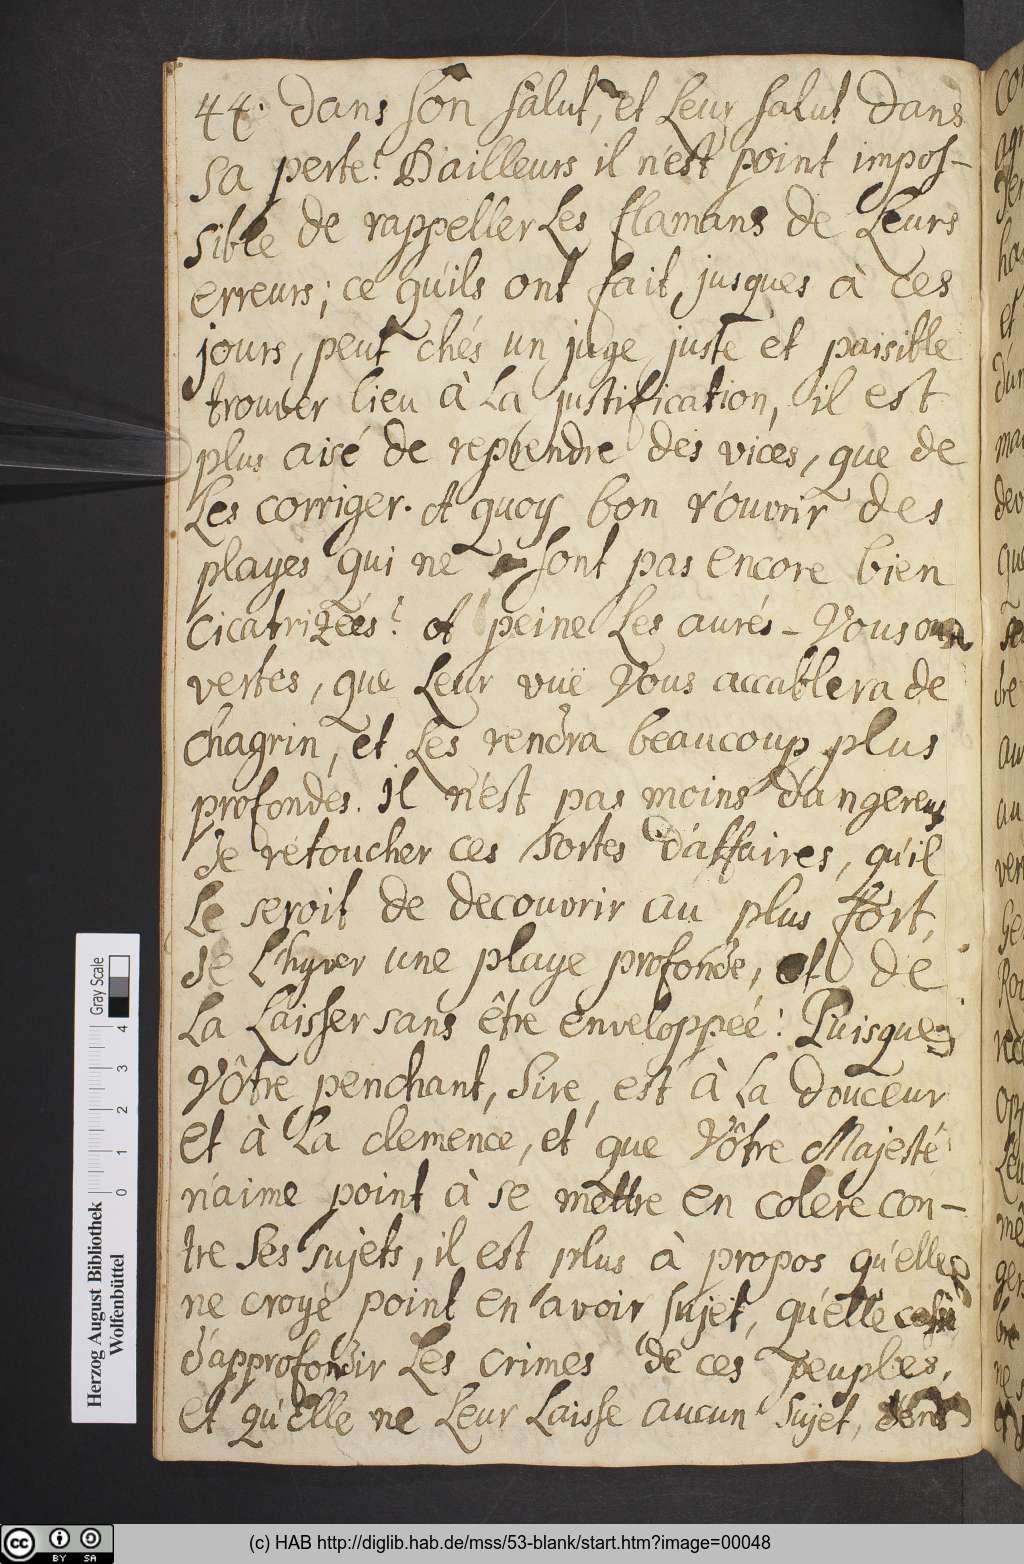 44. dans son salut, et Leur salut dans
sa perte? D'ailleurs il n'est point impos-
sible de rappeller Les flamans de Leurs
erreurs; ce qu'ils ont fait jusques à ces
jours, peut chés un juge juste et paisible
trouver lieu à La justification, il est
plus aisé de reprendre des vices, que de
Les corriger. A quoy bon r'ouvrir des
playes qui ne sont pas encore bien
cicatrizées? A peine Les aurés-Vous ou
vertes, que Leur vuë Vous accablera de
chagrin, et Les rendra beaucoup plus
profondes. Il n'est pas moins dangereux
de retoucher ces sortes d'affaires, qu'il
Le seroit de decouvrir au plus fort,
de L'hyver une playe profonde, et de
La Laisser sans être enveloppée! Puisque
Vôtre penchant, Sire, est à La douceur
et à La clemence, et que Vôtre Majesté
n'aime point à se mettre en colere con-
tre Ses sujets, il est plus à propos qu'elle
ne croye point en avoir sujet, qu'elle cesse
d'approfondir Les crimes de ces peuples,
et qu'Elle ne Leur Laisse aucun Sujet,
Herzog August Bibliothek
Wolfenbüttel
0 1 2 3 4
Gray Scale
cc BY SA
(c) HAB http://diglib.hab.de/mss/53-blank/start.htm?image=00048